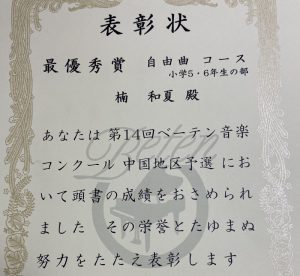 表彰状
最優秀賞 自由曲 コース
小学5・6年生の部
楠 和夏 殿
あなたは 第14回ベーテン音楽
コンクール 中国地区予選 にお
いて頭書の成績をおさめられ
ました その栄誉とたゆまぬ
努力をたたえ表彰します
Beten